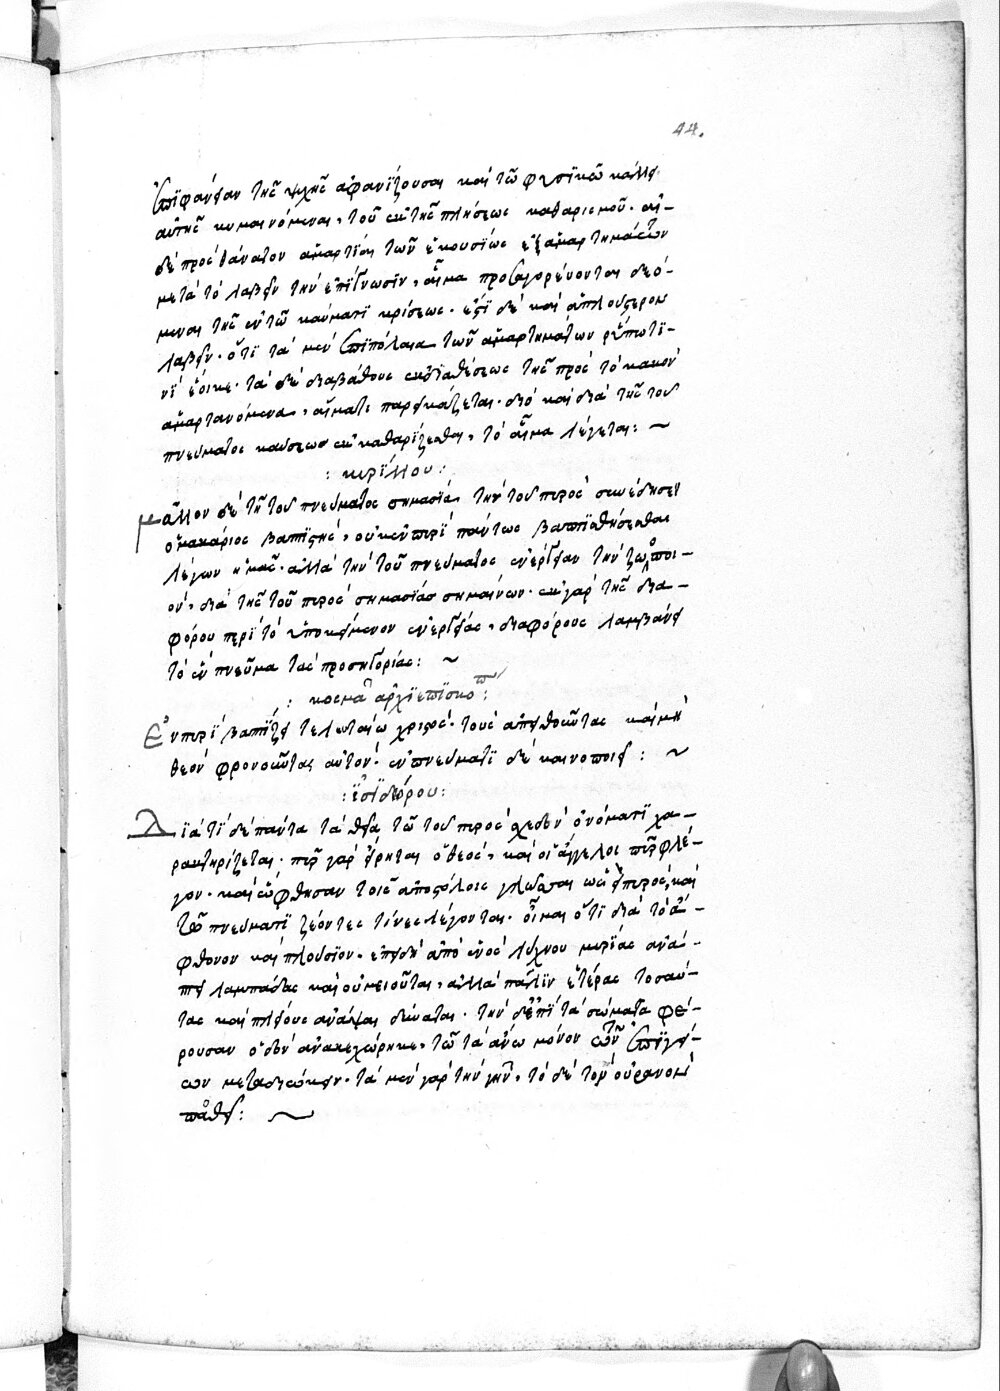 44.
ἐπιφάνειαν τῆς ψυχῆς ἀφανίζουσαι καὶ τῶ φυσικῶ κάλλει
αὐτῆς κυμαινόμεναι, τοῦ ἐκ τῆς πλήσεως καθαρισμοῦ· αἱ-
δὲ πρὸς θάνατον ἁμαρτίαι τῶν ἑκουσίως ἐξαμαρτημάτων
μετὰ τὸ λαβεῖν τὴν ἐπίγνωσιν, αἷμα προσαγορεύονται δεό-
μεναι τῆς ἐν τῶ καύματι κρίσεως· ἔστι δὲ καὶ ἁπλούστερον
λαβεῖν· ὅτι τὰ μὲν ἐπιπόλαια τῶν ἁμαρτημάτων ῥύπω τι-
νὶ ἔοικε· τὰ δὲ διαβάθους ἐκ διαθέσεως τῆς πρὸς τὸ κακὸν
ἁμαρτανόμενα, αἵματι παρεικάζεται· διὸ καὶ διὰ τῆς τοῦ
πνεύματος καύσεως ἐκκαθαρίζεσθαι, τὸ αἷμα λέγεται: ~
: κυρίλλου :
μᾶλλον δὲ τῆ τοῦ πνεύματος σημασία τὴν τοῦ πυρὸς συνέδησεν
ὁ μακάριος βαπτιστής, οὐκ ἐν πυρὶ πάντως βαπτισθήσεσθαι
λέγων ἡμᾶς· ἀλλὰ τὴν τοῦ πνεύματος ἐνέργειαν τὴν ζωοποι-
όν, διὰ τῆς τοῦ πυρὸς σημασίας σημαίνων· ἐκ γὰρ τῆς δια-
φόρου περὶ τὸ ὑποκείμενον ἐνεργείας, διαφόρους λαμβάνει
τὸ ἓν πνεῦμα τὰς προσηγορίας: ~
: κοσμᾶ ἀρχιεπισκοπ :
Ἐν πυρὶ βαπτίζει τελευταίω χριστός· τοὺς ἀπειθοῦντας καὶ μὴ
θεὸν φρονοῦντας αὐτόν· ἐν πνεύματι δὲ καινοποιεῖ: ~
: ἰσιδώρου :
Διατὶ δὲ πάντα τὰ θεῖα τῶ τοῦ πυρὸς σχεδὸν ὀνόματι χα-
ρακτηρίζεται· πῦρ γὰρ εἴρηται ὁ θεός, καὶ οἱ ἄγγελοι πῦρ φλέ-
γον· καὶ ὤφθησαν τοῖς ἀποστόλοις γλῶσσαι ὡσεὶ πυρός, καὶ
τῶ πνεύματι ζέοντες τίνες λέγονται· οἶμαι ὅτι διὰ τὸ ἄ-
φθονον καὶ πλούσιον· ἐπειδὴ ἀπὸ ἑνὸς λύχνου μυρίας ἀνά-
πτει λαμπάδας καὶ οὐ μειοῦται, ἀλλὰ πάλιν ἑτέρας τοσαύ-
τας καὶ πλείους ἀνάψαι δύναται· τὴν δὲ ἐπὶ τὰ σώματα φέ-
ρουσαν ὁδὸν ἀνακεχώρηκε, τῶ τὰ ἄνω μόνον ἐῶν ἐπιγεί-
ων μεταδιώκειν· τὰ μὲν γὰρ τὴν γῆν, τὸ δὲ τὸν οὐρανὸν
ποθεῖ: ~